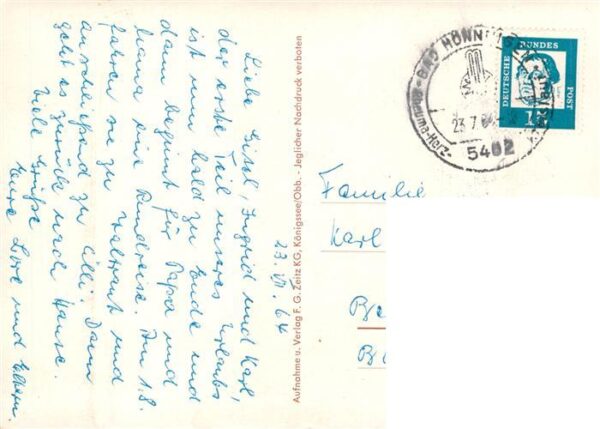 23. VII. 64
Liebe Gisel, Ingrid und Karl,
der erste Teil unseres Urlaubs
ist nun bald zu Ende und
dann beginnt für Papa und
Mama die Rundreise. Am 1.8.
fahren sie zu Waltraut und
anschließend zu Cilli. Dann
geht es zurück nach Hause.
Viele Grüße
Eure Lore und Eltern.
Aufnahme u. Verlag F. G. Zeitz KG, Königssee/Obb. - Jeglicher Nachdruck verboten
BAD HÖNNINGEN
23.7.64
5462
DEUTSCHE BUNDES POST
Familie
Karl